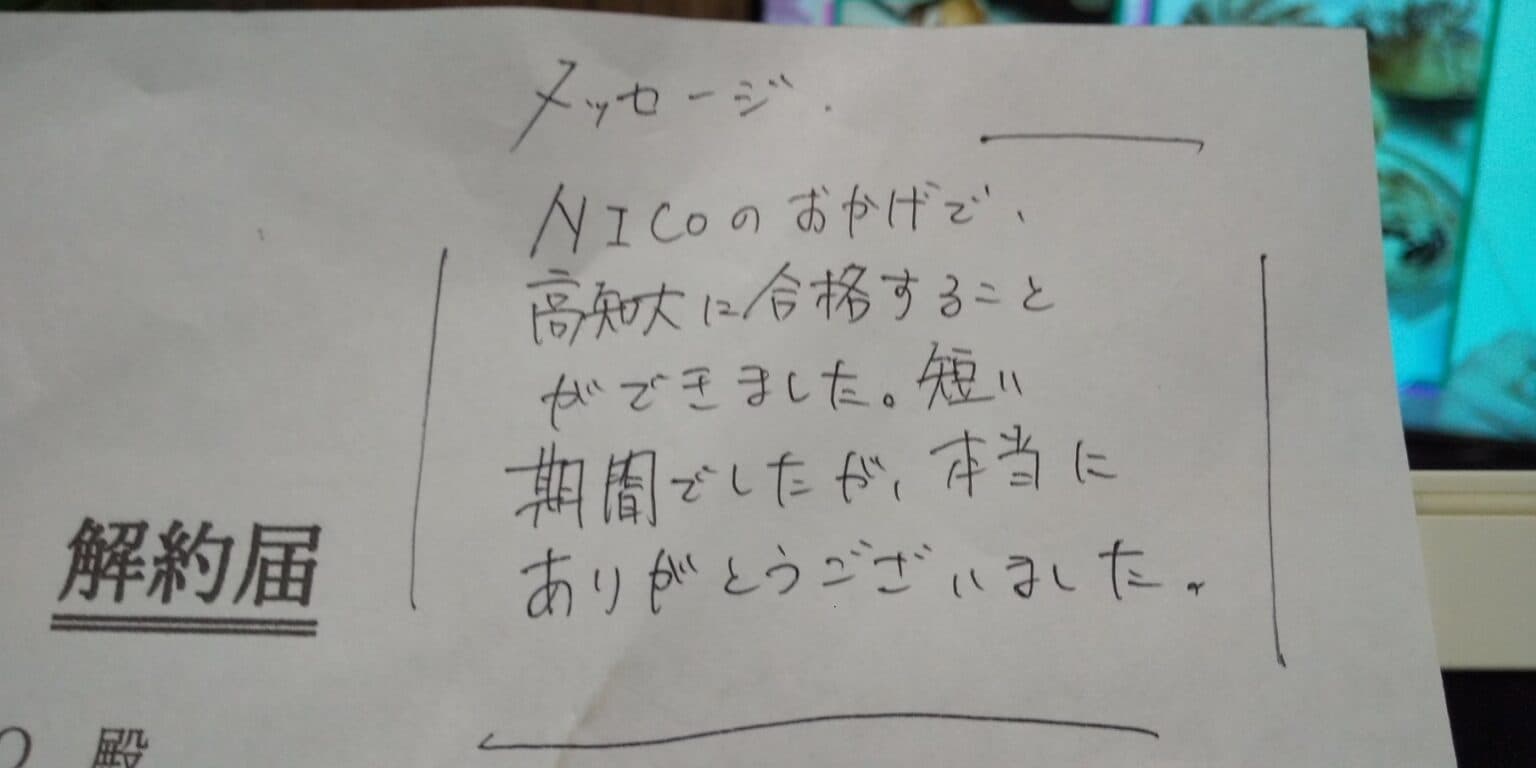 メッセージ.
NICOのおかげで、
高知大に合格すること
ができました。短い
期間でしたが、本当に
ありがとうございました。
解約届
殿